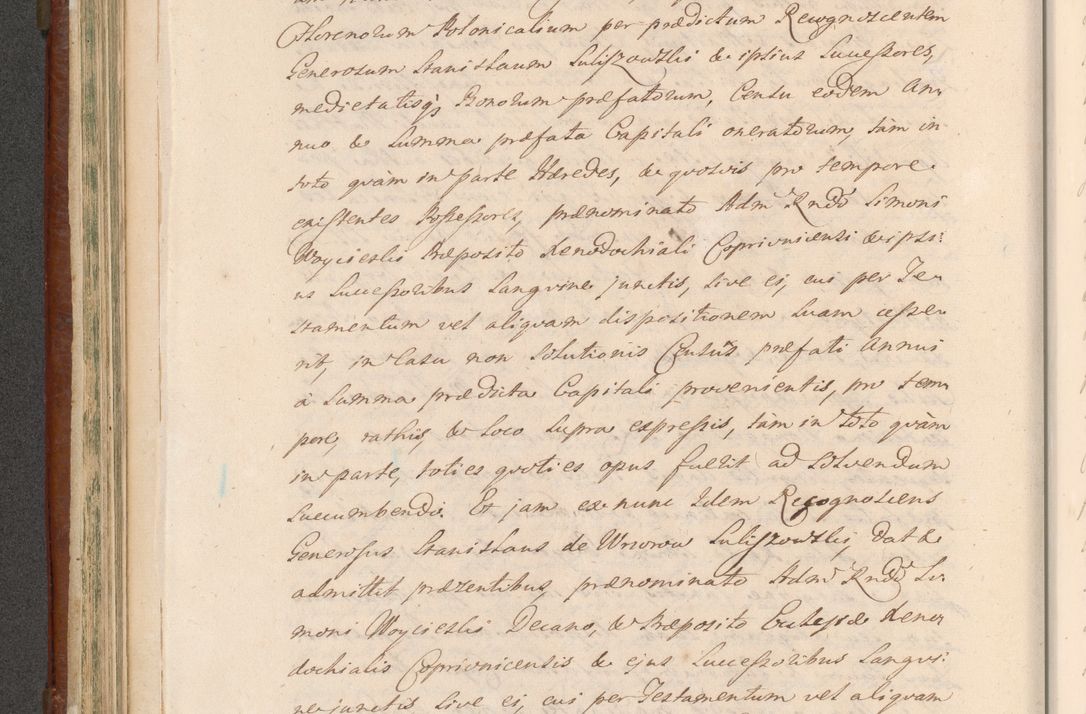 Florenorum Polonicalium per prædictum Recognoscentem
Generosum Stanislaum Suliszowski & ipsius Successores,
medietatisq; Bonorum præfatorum, Censu eodem An,
nuo & Summa præfata Capitali oneratorum, tàm in
toto quàm in parte Hæredes, & quosvis pro tempore
existentes Possessores, prænominato Adm Rndo Simoni
Woycieski Præposito Xenodochiali Coprivnicensi & ipsi:
us Successoribus Sangvine junctis, sive ei, cui per Te,
stamentum vel aliquam dispositionem suam cesse,
rit, in Casu non Solutionis Censûs præfati Annui
à Summa prædicta Capitali provenientis, pro tem,
pore, rathis, & Loco supra expressis, tàm in toto quàm
in parte, toties quoties opus fuerit ad Solvendum
succumbendo. Et jam ex nunc Idem Recognoscens
Generosus Stanislaus de Wrsowa Suliszowski, dat &
admittit præsentibus, prænominato Adm Rndo Si,
moni Woycieski Decano, & Præposito Ecclesiæ Xeno,
dochialis Coprivnicensis & ejus Successoribus Sangvi:
ne junctis sive ei, cui per Testamentum vel aliquam